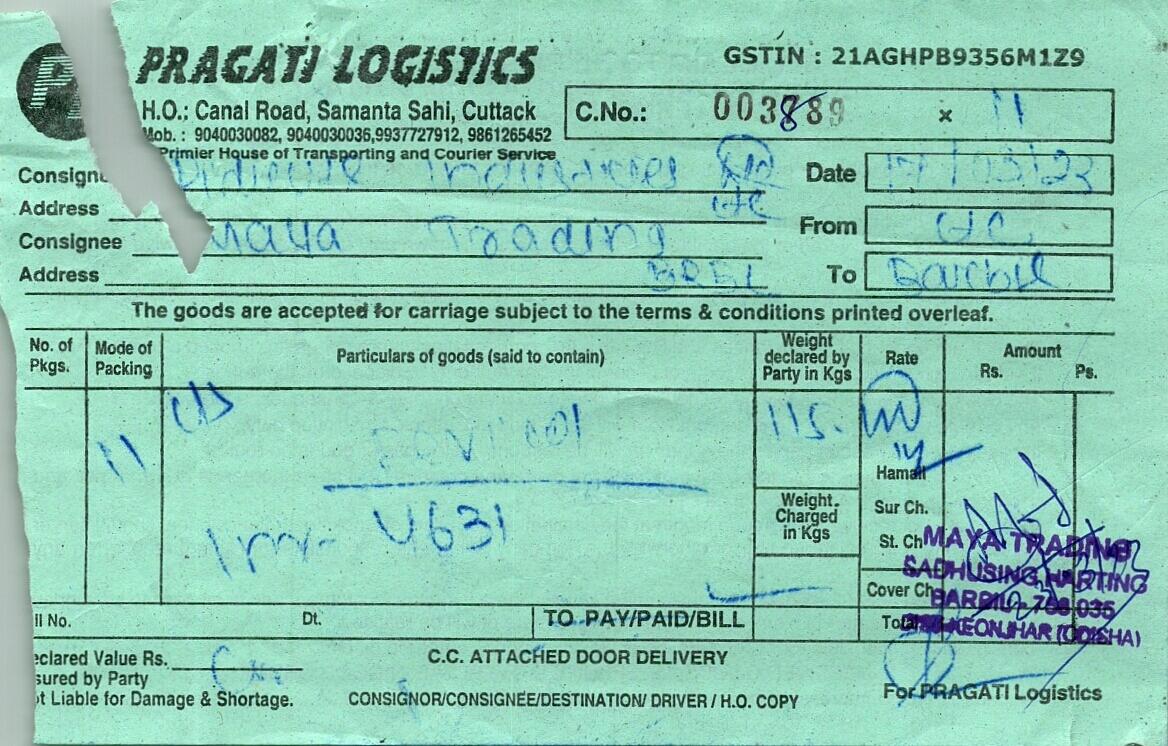 PRAGATI LOGISTICS
GSTIN : 21AGHPB9356M1Z9
H.O.: Canal Road, Samanta Sahi, Cuttack
Mob. : 9040030082, 9040030036,9937727912, 9861265452
Primier House of Transporting and Courier Service
C.No.: 003889 × 11
Consign Industries
Date 17/03/23
Address
From
Consignee Maya Trading
Address BRBL
To Barbil
The goods are accepted for carriage subject to the terms & conditions printed overleaf.
No. of Pkgs.
Mode of Packing
Particulars of goods (said to contain)
Weight declared by Party in Kgs
Rate
Amount
Rs. Ps.
11
115.
4631
Hamali
Weight. Charged in Kgs
Sur Ch.
St. Ch
Cover Ch
Total
MAYA TRADING
SADHUSING HARTING
BARBIL - 758 035
DIST-KEONJHAR (ODISHA)
ll No. Dt. TO PAY/PAID/BILL
eclared Value Rs.
C.C. ATTACHED DOOR DELIVERY
sured by Party
t Liable for Damage & Shortage.
CONSIGNOR/CONSIGNEE/DESTINATION/ DRIVER / H.O. COPY
For PRAGATI Logistics